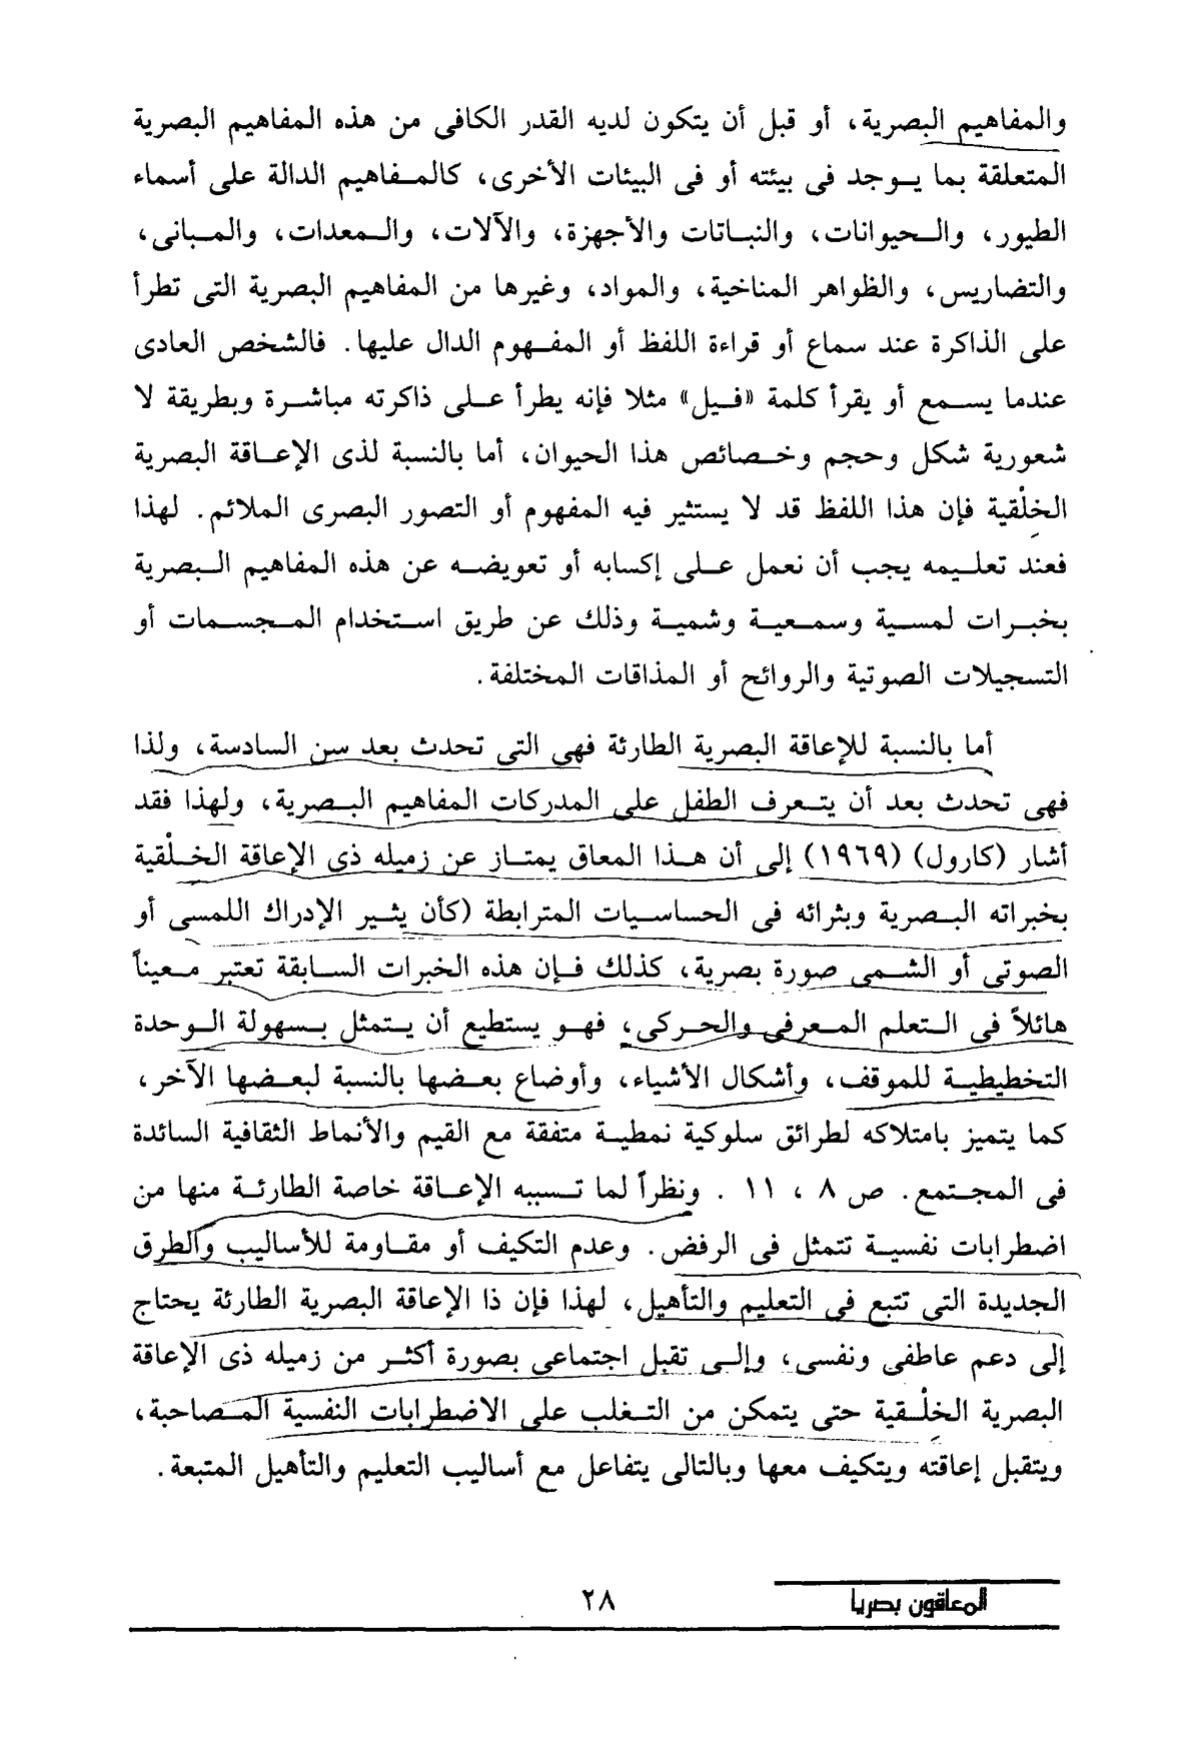 والمفاهيم البصرية، أو قبل أن يتكون لديه القدر الكافى من هذه المفاهيم البصرية
المتعلقة بما يوجد فى بيئته أو فى البيئات الأخرى، كالمفاهيم الدالة على أسماء
الطيور، والحيوانات، والنباتات والأجهزة، والآلات، والمعدات، والمبانى،
والتضاريس، والظواهر المناخية، والمواد، وغيرها من المفاهيم البصرية التى تطرأ
على الذاكرة عند سماع أو قراءة اللفظ أو المفهوم الدال عليها. فالشخص العادى
عندما يسمع أو يقرأ كلمة «فيل» مثلا فإنه يطرأ على ذاكرته مباشرة وبطريقة لا
شعورية شكل وحجم وخصائص هذا الحيوان، أما بالنسبة لذى الإعاقة البصرية
الخِلْقية فإن هذا اللفظ قد لا يستثير فيه المفهوم أو التصور البصرى الملائم. لهذا
فعند تعليمه يجب أن نعمل على إكسابه أو تعويضه عن هذه المفاهيم البصرية
بخبرات لمسية وسمعية وشمية وذلك عن طريق استخدام المجسمات أو
التسجيلات الصوتية والروائح أو المذاقات المختلفة.
أما بالنسبة للإعاقة البصرية الطارئة فهى التى تحدث بعد سن السادسة، ولذا
فهى تحدث بعد أن يتعرف الطفل على المدركات المفاهيم البصرية، ولهذا فقد
أشار (كارول) (١٩٦٩) إلى أن هذا المعاق يمتاز عن زميله ذى الإعاقة الخلْقية
بخبراته البصرية وبثرائه فى الحساسيات المترابطة (كأن يثير الإدراك اللمسى أو
الصوتى أو الشمى صورة بصرية، كذلك فإن هذه الخبرات السابقة تعتبر معيناً
هائلاً فى التعلم المعرفى والحركى، فهو يستطيع أن يتمثل بسهولة الوحدة
التخطيطية للموقف، وأشكال الأشياء، وأوضاع بعضها بالنسبة لبعضها الآخر،
كما يتميز بامتلاكه لطرائق سلوكية نمطية متفقة مع القيم والأنماط الثقافية السائدة
فى المجتمع. ص ٨ ، ١١ . ونظراً لما تسببه الإعاقة خاصة الطارئة منها من
اضطرابات نفسية تتمثل فى الرفض. وعدم التكيف أو مقاومة للأساليب والطرق
الجديدة التى تتبع فى التعليم والتأهيل، لهذا فإن ذا الإعاقة البصرية الطارئة يحتاج
إلى دعم عاطفى ونفسى، وإلى تقبل اجتماعى بصورة أكثر من زميله ذى الإعاقة
البصرية الخِلْقية حتى يتمكن من التغلب على الاضطرابات النفسية المصاحبة،
ويتقبل إعاقته ويتكيف معها وبالتالى يتفاعل مع أساليب التعليم والتأهيل المتبعة.
المعاقون بصريا
٢٨